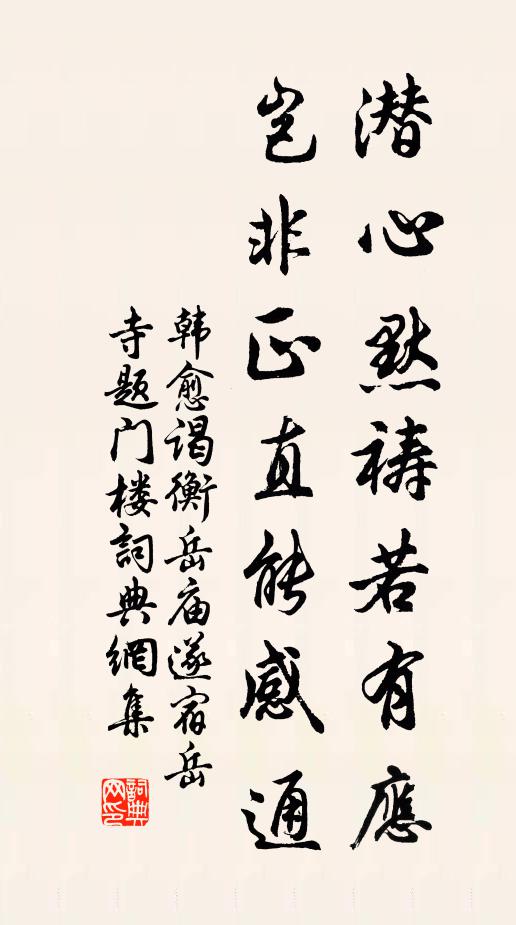 潜心默祷若有應
豈非正直能感通
韩愈谒衡岳庙遂宿岳
寺题门楼詞典網集
詞典网印